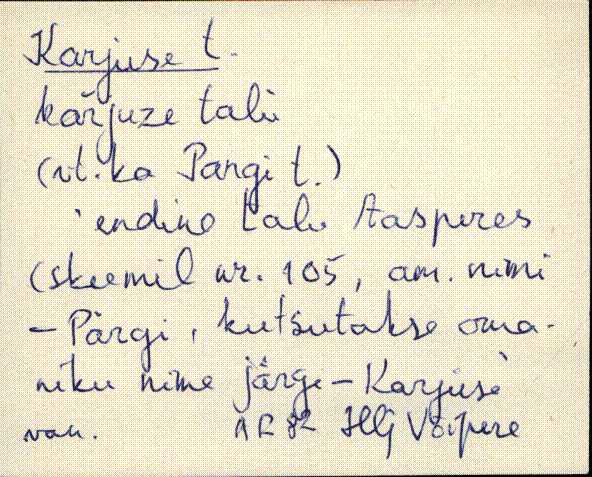 Karjuse t.
kařjuze talu
(vt. ka Pargi t.)
endine talu Aasperes
(skeemil nr. 105, am. nimi
– Pärgi, kutsutakse oma-
niku nime järgi – Karjuse
van. AR 82 Võipere